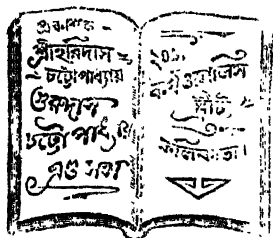 প্রকাশক
শ্রীহরিদাস
চট্টোপাধ্যায়
গুরুদাস
চট্টোপাধ্যায়
এণ্ড সন্স
২০১
কর্ণওয়ালিস
ষ্ট্রীট
কলিকাতা।